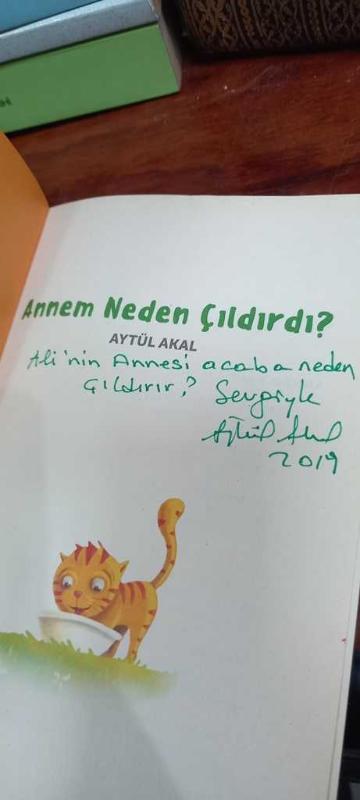 Annem Neden Çıldırdı?
AYTÜL AKAL
Ali'nin Annesi acaba neden
çıldırır? Sevgiyle
Aytül Akal
2019